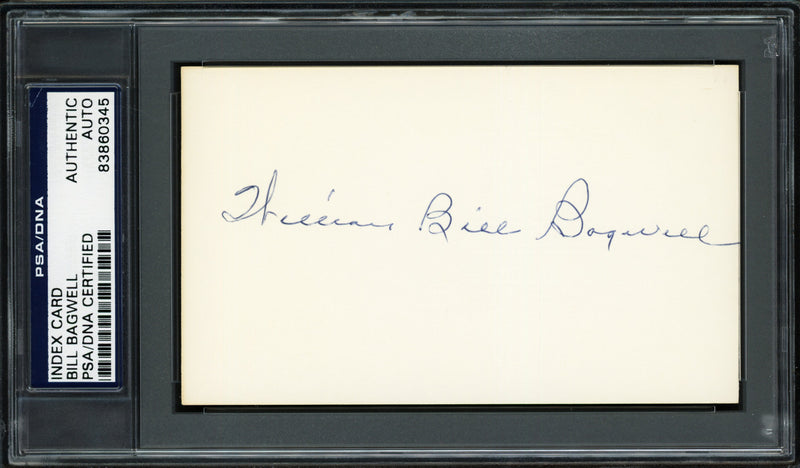 PSA/DNA
INDEX CARD
BILL BAGWELL
PSA/DNA CERTIFIED
AUTHENTIC
AUTO
83860345
William Bill Bagwell